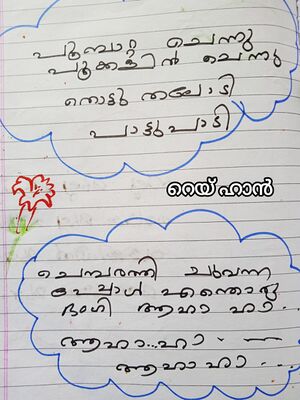 പൂമ്പാറ്റ ചെന്നു
പൂക്കളിൽ ചെന്നു
തൊട്ടു തലോടി
പാട്ടുപാടി
റെയ്ഹാൻ
ചെമ്പരത്തി ചുവന്ന
പ്പോൾ എന്തൊരു
ഭംഗി ആഹാ ഹാ...
ആഹാ..ഹാ. -
ആഹാഹാ...